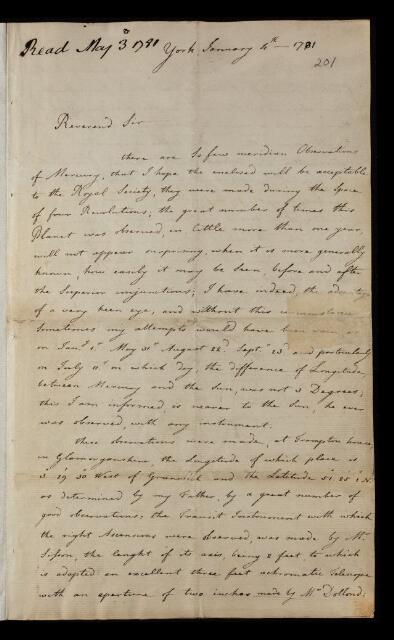 Read May 3d 1781 York January 4th — 1781
201
Reverend Sir
there are so few meridian Observations
of Mercury, that I hope the enclosed will be acceptable
to the Royal Society, they were made during the space
of four Revolutions; the great number of times this
Planet was observed, in little more than one year,
will not appear surprising, when it is more generally
known, how easily it may be seen, before and after
the Superior conjunctions; I have indeed, the advantage
of a very keen eye, and without this circumstance
sometimes my attempts would have been
on Jany May 31st August 22d Septr 23d and particularly
on July 11th on which day, the difference of Longitude
between Mercury and the Sun, was not 3 Degrees;
this I am informed, is nearer to the Sun, he ever
was observed, with any instrument.
These observations were made, at Frampton house
in Glamorganshire the Longitude of which place is
3° 29' 30" West of Greenwich and the Latitude 51° 25' 1" N.
as determined by my Father, by a great number of
good observations; the Transit Instrument with which
the right Ascensions were observed, was made by Mr
Sisson, the lenght of its axis, being 2 feet to which
is adapted an excellent three feet achromatic Telescope
with an aperture of two inches made by Mr Dollond: